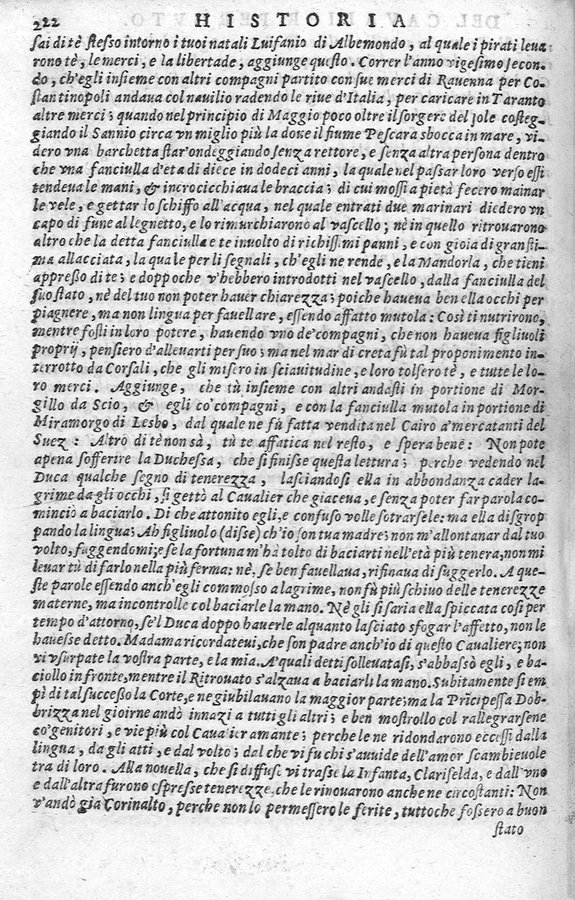 222 HISTORIA
sai di tè stesso intorno i tuoi natali Luifanio di Albemondo, al quale i pirati leua
rono tè, le merci, e la libertade, aggiunge questo. Correr l'anno vigesimo secon-
do, ch'egli insieme con altri compagni partito con sue merci di Rauenna per Co-
stantinopoli andaua col nauilio radendo le riue d'Italia, per caricare in Taranto
altre merci; quando nel principio di Maggio poco oltre il sorgere del sole costeg-
giando il Sannio circa vn miglio più là doue il fiume Pescara sbocca in mare, vi-
dero vna barchetta star'ondeggiando senza rettore, e senza altra persona dentro
che vna fanciulla d'eta di diece in dodeci anni, la quale nel passar loro verso essi
tendeua le mani, & incrocicchiaua le braccia; di cui mossi a pietà fecero mainar
le vele, e gettar lo schiffo all'acqua, nel quale entrati due marinari diedero vn
capo di fune al legnetto, e lo rimurchiarono al vascello; nè in quello ritrouarono
altro che la detta fanciulla e te inuolto di richissmi panni, e con gioia di granstì-
ma allacciata, la quale per li segnali, ch'egli ne rende, e la Mandorla, che tieni
appresso di te; e doppoche v'hebbero introdotti nel vascello, dalla fanciulla del
suo stato, nè del tuo non poter hauer chiarezza; poiche haueua ben ella occhi per
piagnere, ma non lingua per fauellare, essendo affatto mutola: Così ti nutrirono,
mentre fosti in loro potere, hauendo vno de'compagni, che non haueua figliuoli
proprij, pensiero d'alleuarti per suo; ma nel mar di creta fù tal proponimento in-
terrotto da Corsali, che gli misero in sciauitudine, e loro tolsero tè, e tutte le lo-
ro merci. Aggiunge, che tù insieme con altri andasti in portione di Mor-
gillo da Scio, & egli co'compagni, e con la fanciulla mutola in portione di
Miramorgo di Lesbo, dal qual ne fù fatta vendita nel Cairo a'mercatanti del
Suez: Altro di tè non sà, tù te affatica nel resto, e spera bene: Non pote
apena sofferire la Duchessa, che si finisse questa lettura; perche vedendo nel
Duca qualche segno di tenerezza, lasciandosi ella in abbondanza cader la-
grime dagli occhi, si gettò al Caualier che giaceua, e senza poter far parola co-
minciò a baciarlo. Di che attonito egli, e confuso volle sotrarsele: ma ella disgrop
pando la lingua; Ah figliuolo (disse) ch'io son tua madre; non m'allontanar dal tuo
volto, fuggendomi; e se la fortuna m'hà tolto di baciarti nell'età più tenera, non mi
leuar tù di farlo nella più ferma: nè, se ben fauellaua, rifinaua di suggerlo. A que-
ste parole essendo anch'egli commosso a lagrime, non fù più schiuo delle tenerezze
materne, ma incontrolle col baciarle la mano. Nè gli si saria ella spiccata così per
tempo d'attorno, se'l Duca doppo hauerle alquanto lasciato sfogar l'affetto, non le
hauesse detto. Madama ricordateui, che son padre anch'io di questo Caualiere; non
vi vsurpate la vostra parte, e la mia. A'quali detti solleuatasi, s'abbassò egli, e ba-
ciollo in fronte, mentre il Ritrouato s'alzaua a baciarli la mano. Subitamente si em
pì di tal successo la Corte, e ne giubilauano la maggior parte; ma la Prĩcipessa Dob-
brizza nel gioirne andò innãzi a tutti gli altri; e ben mostrollo col rallegrarsene
co'genitori, e vie più col Caualier amante; perche le ne ridondarono eccessi dalla
lingua, da gli atti, e dal volto; dal che vi fu chi s'auuide dell'amor scambieuole
tra di loro. Alla nouella, che si diffuse vi trasse la Infanta, Clariselda, e dall'vno
e dall'altra furono espresse tenerezze, che le rinouarono anche ne circostanti: Non
v'andò già Corinalto, perche non lo permessero le ferite, tuttoche fossero a buon
stato